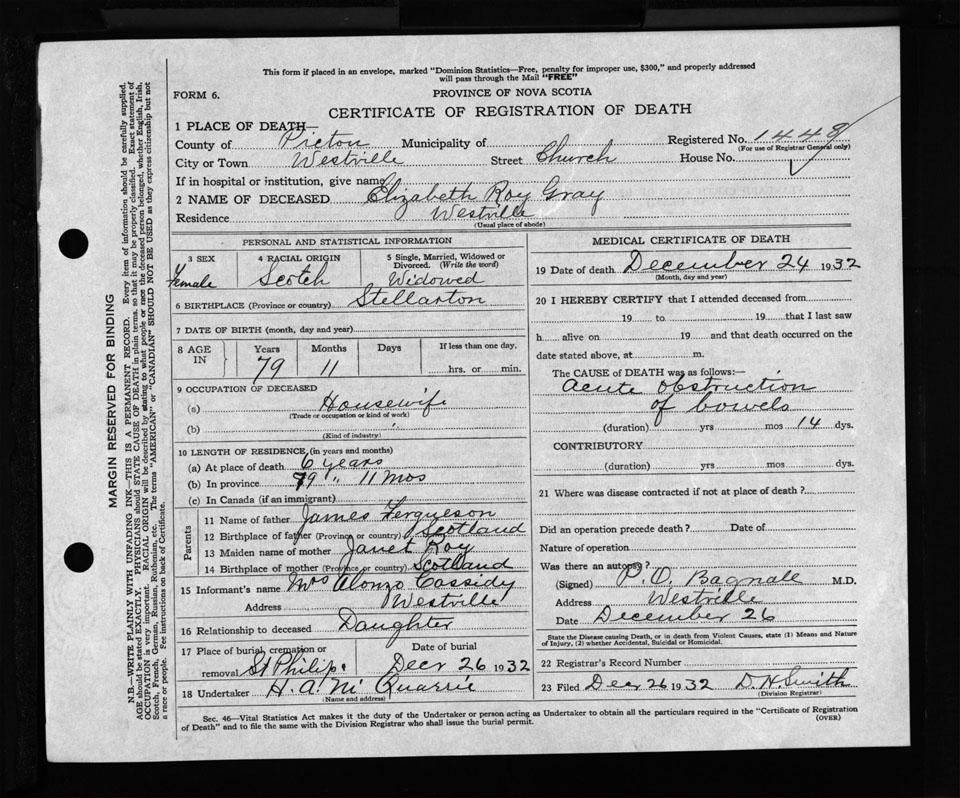 This form if placed in an envelope, marked "Dominion Statistics—Free, penalty for improper use, $300," and properly addressed
will pass through the Mail "FREE"
FORM 6.
PROVINCE OF NOVA SCOTIA
CERTIFICATE OF REGISTRATION OF DEATH
1 PLACE OF DEATH—
Registered No. 1448
(For use of Registrar General only)
County of Pictou Municipality of
City or Town Westville Street Church House No.
If in hospital or institution, give name
2 NAME OF DECEASED Elizabeth Roy Gray
Residence Westville
(Usual place of abode)
PERSONAL AND STATISTICAL INFORMATION
3 SEX Female
4 RACIAL ORIGIN Scotch
5 Single, Married, Widowed or Divorced. (Write the word) Widowed
6 BIRTHPLACE (Province or country) Stellarton
7 DATE OF BIRTH (month, day and year)
8 AGE IN Years 79 Months 11 Days If less than one day, hrs. or min.
9 OCCUPATION OF DECEASED
(a) Housewife
(Trade or occupation or kind of work)
(b)
(Kind of industry)
10 LENGTH OF RESIDENCE, (in years and months)
(a) At place of death 6 years
(b) In province 79 " 11 mos
(c) In Canada (if an immigrant)
Parents
11 Name of father James Fergueson
12 Birthplace of father (Province or country) Scotland
13 Maiden name of mother Janet Roy
14 Birthplace of mother (Province or country) Scotland
15 Informant's name Mrs Alonzo Cassidy
Address Westville
16 Relationship to deceased Daughter
17 Place of burial, cremation or removal St Philips
Date of burial Decr 26 1932
18 Undertaker H. A. McQuarrie
(Name and address)
MEDICAL CERTIFICATE OF DEATH
19 Date of death December 24 1932
(Month, day and year)
20 I HEREBY CERTIFY that I attended deceased from
19 to 19 that I last saw
h alive on 19 and that death occurred on the
date stated above, at m.
The CAUSE of DEATH was as follows:—
Acute Obstruction
of bowels
(duration) yrs mos 14 dys.
CONTRIBUTORY
(duration) yrs. mos. dys.
21 Where was disease contracted if not at place of death?
Did an operation precede death? Date of
Nature of operation
Was there an autopsy?
(Signed) P. O. Bagnall M.D.
Address Westville
Date December 26
State the Disease causing Death, or in death from Violent Causes, state (1) Means and Nature
of Injury, (2) whether Accidental, Suicidal or Homicidal.
22 Registrar's Record Number
23 Filed Decr 26 1932 D. H. Smith
(Division Registrar)
Sec. 46—Vital Statistics Act makes it the duty of the Undertaker or person acting as Undertaker to obtain all the particulars required in the "Certificate of Registration
of Death" and to file the same with the Division Registrar who shall issue the burial permit.
(OVER)
MARGIN RESERVED FOR BINDING
N.B.—WRITE PLAINLY WITH UNFADING INK—THIS IS A PERMANENT RECORD. Every item of information should be carefully supplied.
AGE should be stated EXACTLY. PHYSICIANS should STATE CAUSE OF DEATH in plain terms, so that it may be properly classified. Exact statement of
OCCUPATION is very important. RACIAL ORIGIN will be described by stating to what people or race the deceased person belonged, whether English, Irish,
Scotch, French, German, Russian, Ruthenian, etc. The terms "AMERICAN" or "CANADIAN" SHOULD NOT BE USED as they express citizenship but not
a race or people. See instructions on back of Certificate.